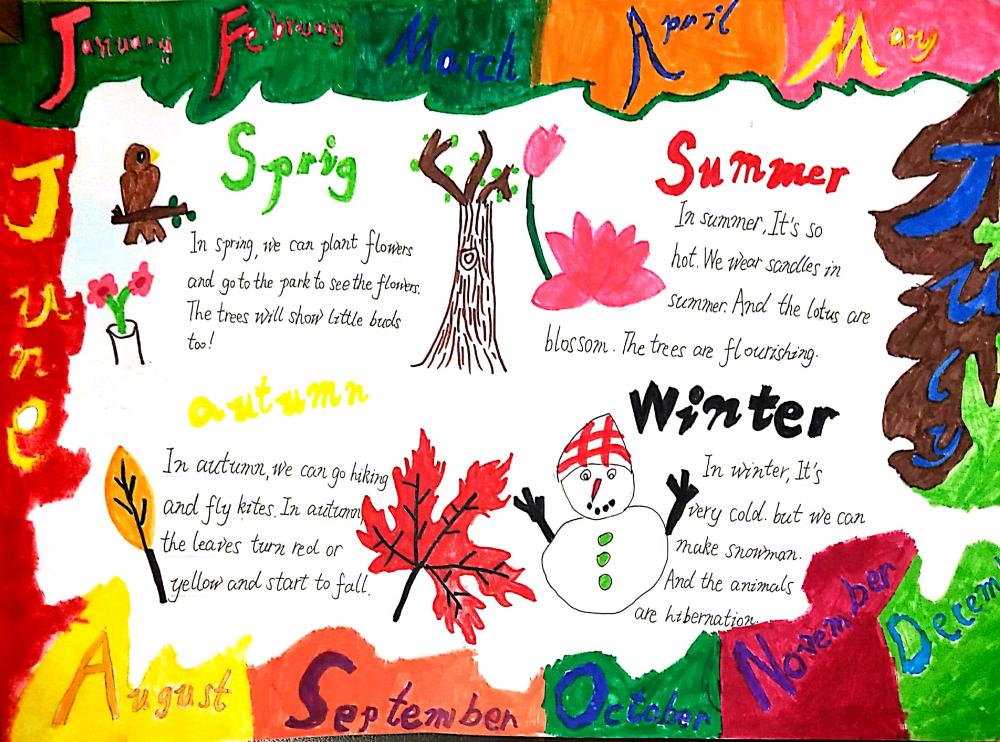 January
February
March
April
May
June
July
Sprig
In spring, we can plant flowers
and go to the park to see the flowers.
The trees will show little buds
too!
Summer
In summer, It's so
hot. We wear sandles in
summer. And the lotus are
blossom. The trees are flourishing.
autumn
In autumn, we can go hiking
and fly kites. In autumn,
the leaves turn red or
yellow and start to fall.
Winter
In winter, It's
very cold. but we can
make snowman.
And the animals
are hibernation.
August
September
October
November
Decem